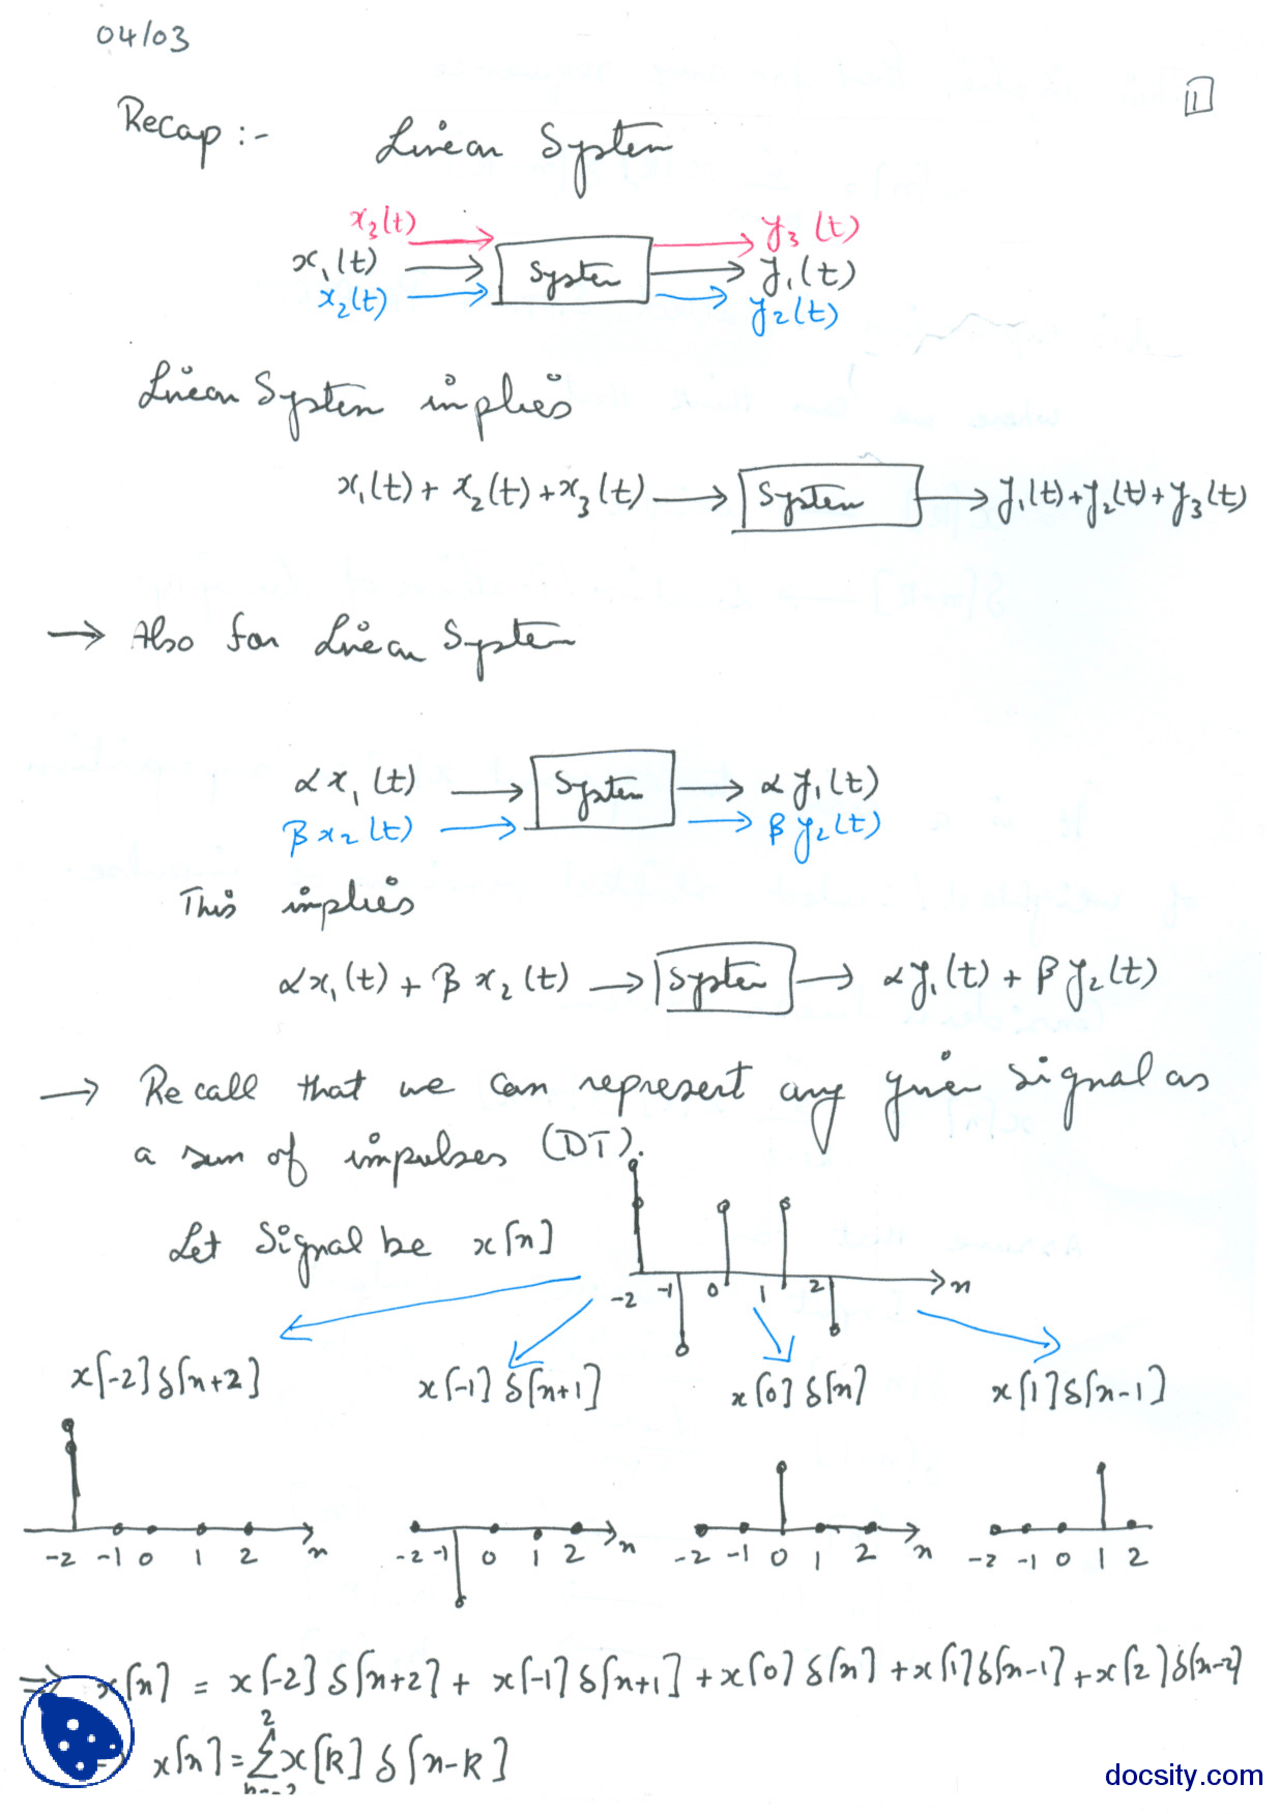 04/03
1
Recap :- Linear System
x₃(t) y₃(t)
x₁(t) System y₁(t)
x₂(t) y₂(t)
Linear System implies
x₁(t) + x₂(t) + x₃(t) → System → y₁(t) + y₂(t) + y₃(t)
→ Also for Linear System
αx₁(t) → System → αy₁(t)
βx₂(t) → → βy₂(t)
This implies
αx₁(t) + βx₂(t) → System → αy₁(t) + βy₂(t)
→ Recall that we can represent any given signal as
a sum of impulses (DT).
Let Signal be x[n]
-2 -1 0 1 2 n
x[-2]δ[n+2] x[-1]δ[n+1] x[0]δ[n] x[1]δ[n-1]
-2 -1 0 1 2 n -2 -1 0 1 2 n -2 -1 0 1 2 n -2 -1 0 1 2
⇒ x[n] = x[-2]δ[n+2] + x[-1]δ[n+1] + x[0]δ[n] + x[1]δ[n-1] + x[2]δ[n-2]
2
x[n] = Σ x[k] δ[n-k]
docsity.com